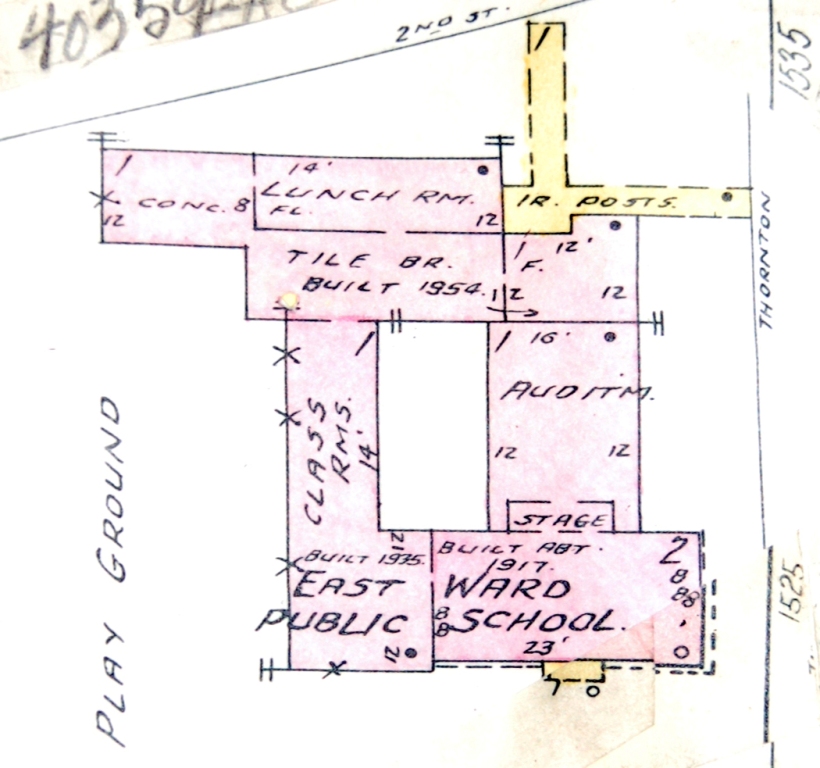 2ND ST.
1535
1
1
14'
LUNCH RM.
FL.
12
CONC. 8
12
IR. POSTS.
THORNTON
TILE BR.
BUILT 1954.
12
1
12'
F.
12
1
CLASS
RMS.
14'
1
16'
AUDITM.
12
12
STAGE
PLAY GROUND
12
BUILT 1935.
BUILT ABT.
1917.
2
8
88
'
O
EAST WARD
PUBLIC SCHOOL.
8
8
23'
12
1 O
1525